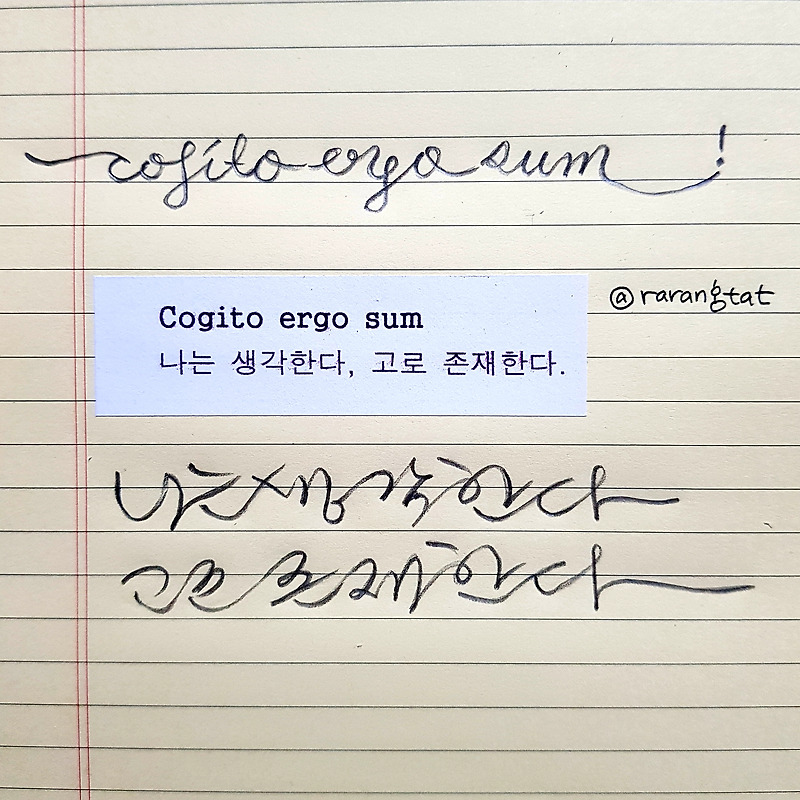 cogito ergo sum !
Cogito ergo sum
@rarangtat
나는 생각한다, 고로 존재한다.
나는 생각한다
고로 존재한다